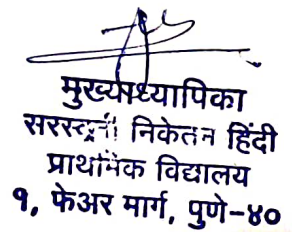 मुख्याध्यापिका
सरस्वती निकेतन हिंदी
प्राथमिक विद्यालय
१, फेअर मार्ग, पुणे-४०